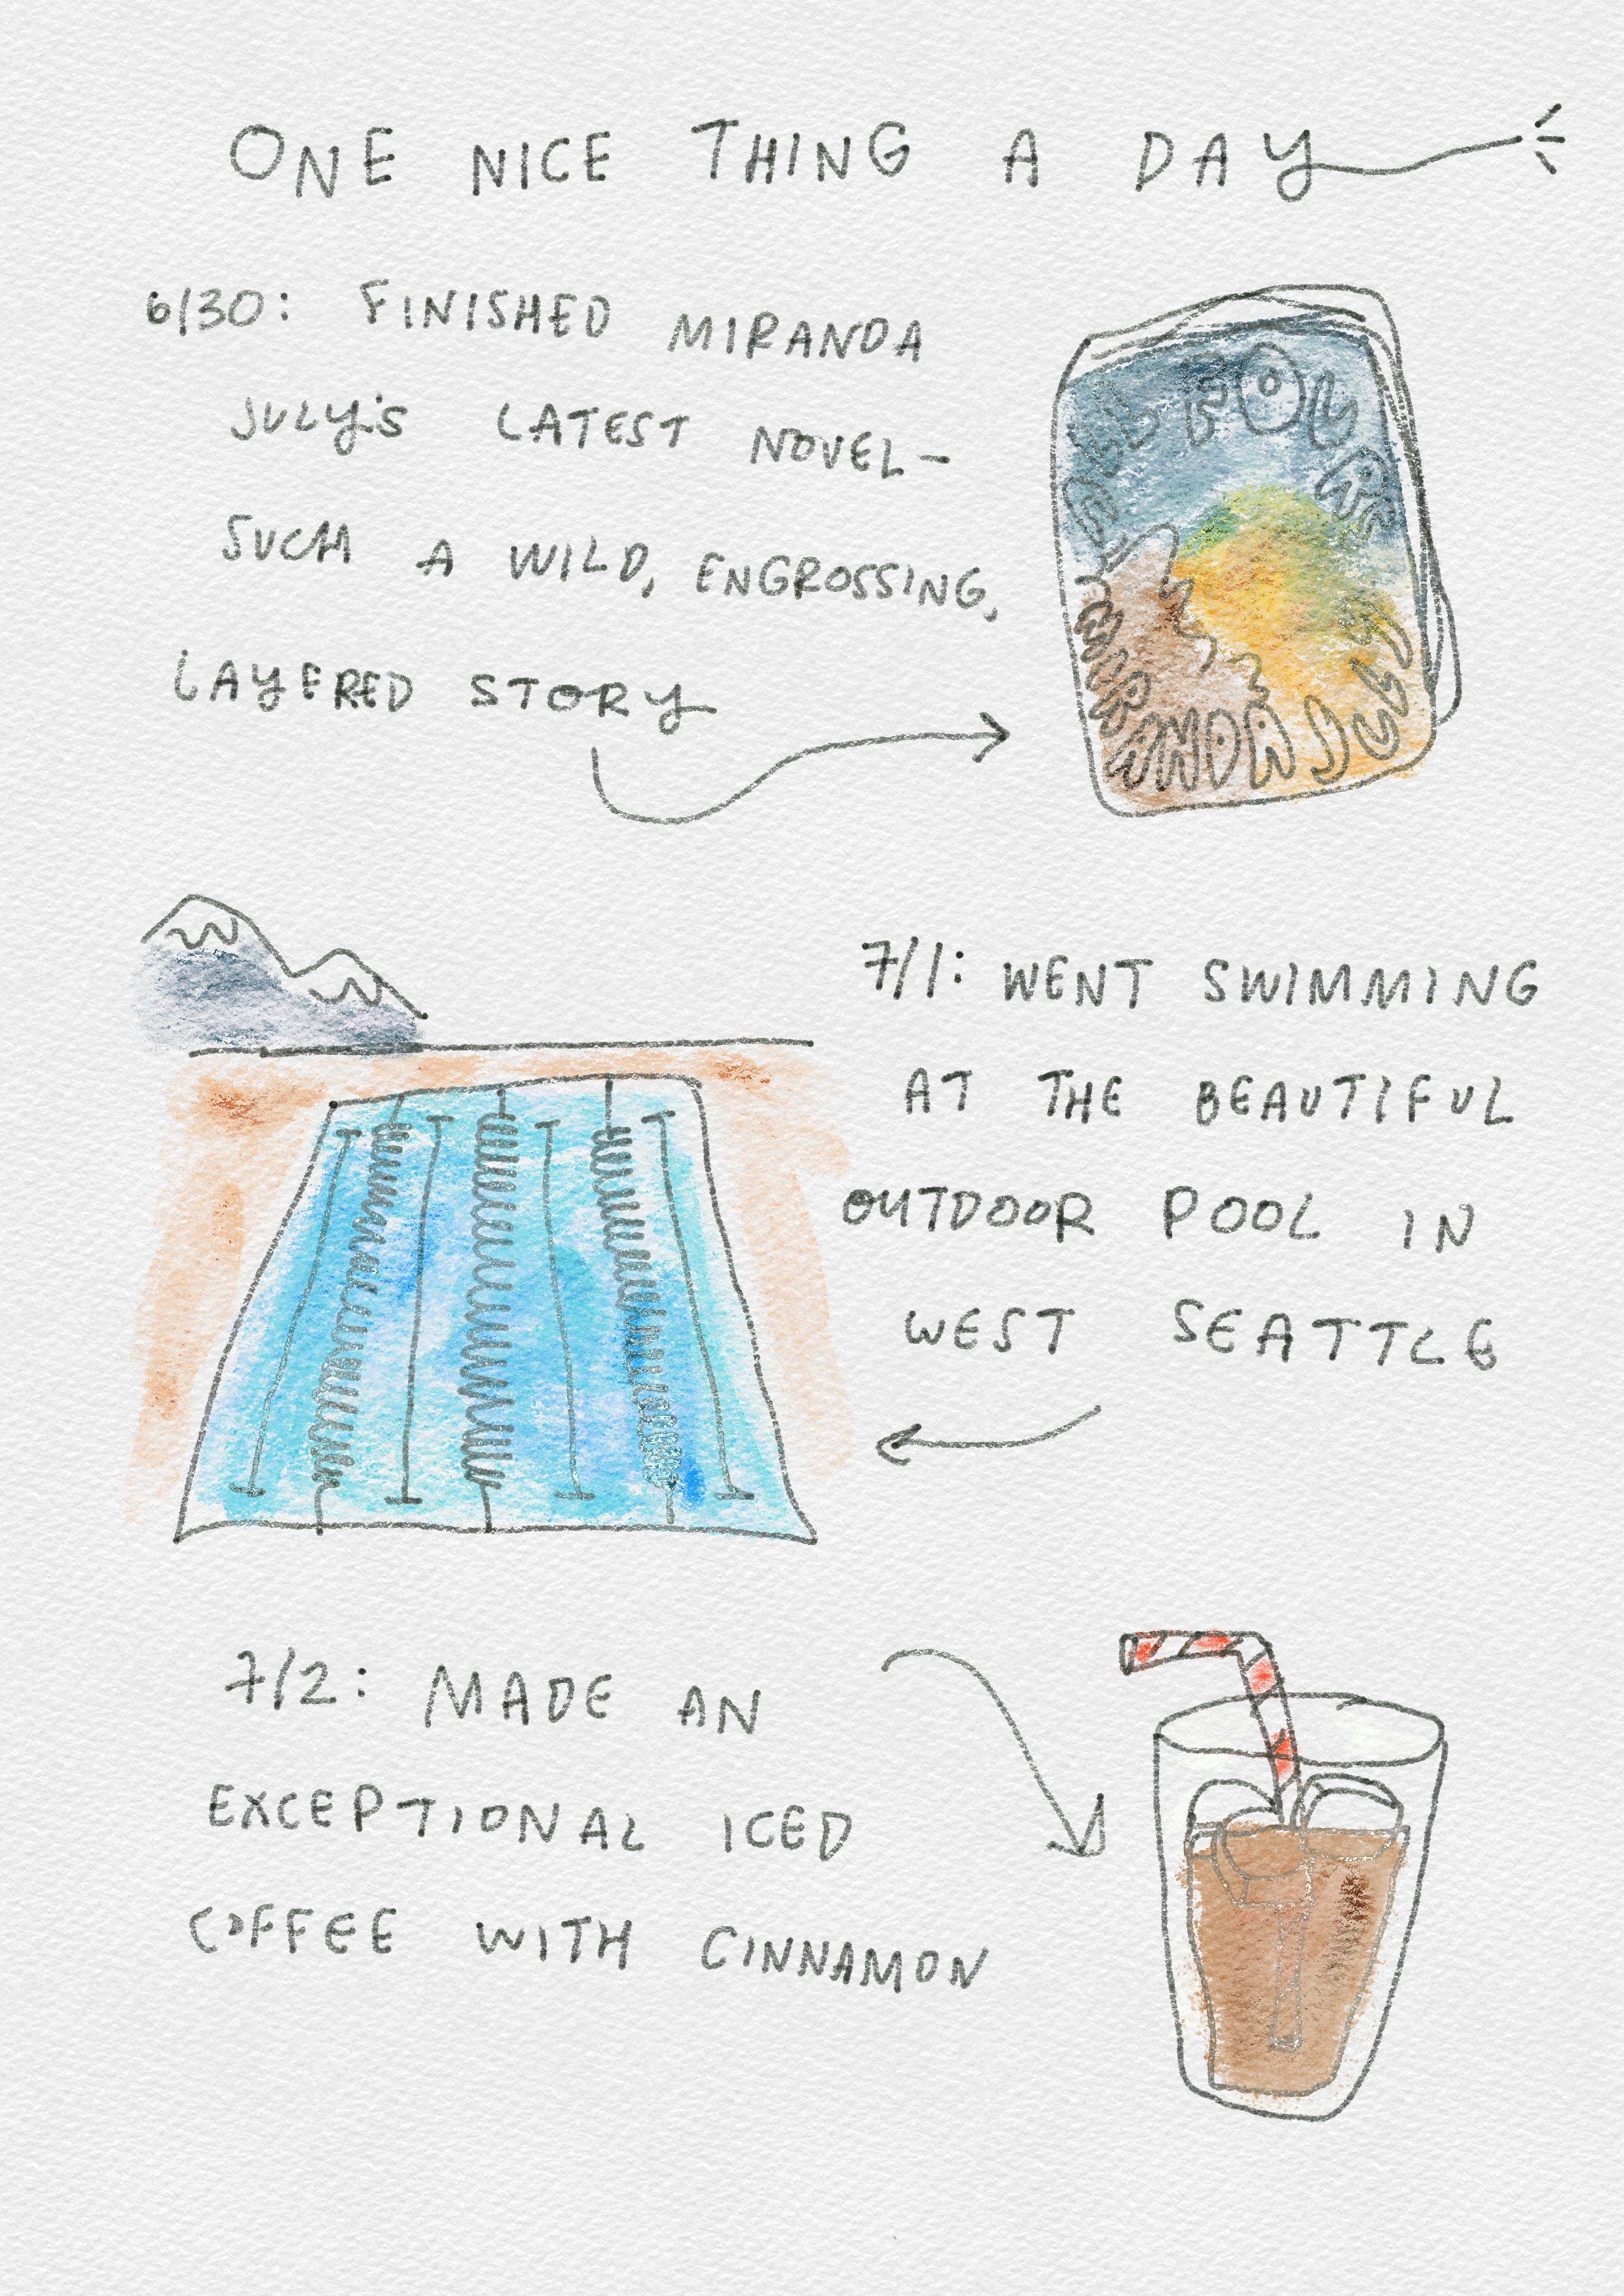 ONE NICE THING A DAY
6/30: FINISHED MIRANDA
JULY'S LATEST NOVEL-
SUCH A WILD, ENGROSSING,
LAYERED STORY
ALL FOURS
MIRANDA JULY
7/1: WENT SWIMMING
AT THE BEAUTIFUL
OUTDOOR POOL IN
WEST SEATTLE
7/2: MADE AN
EXCEPTIONAL ICED
COFFEE WITH CINNAMON